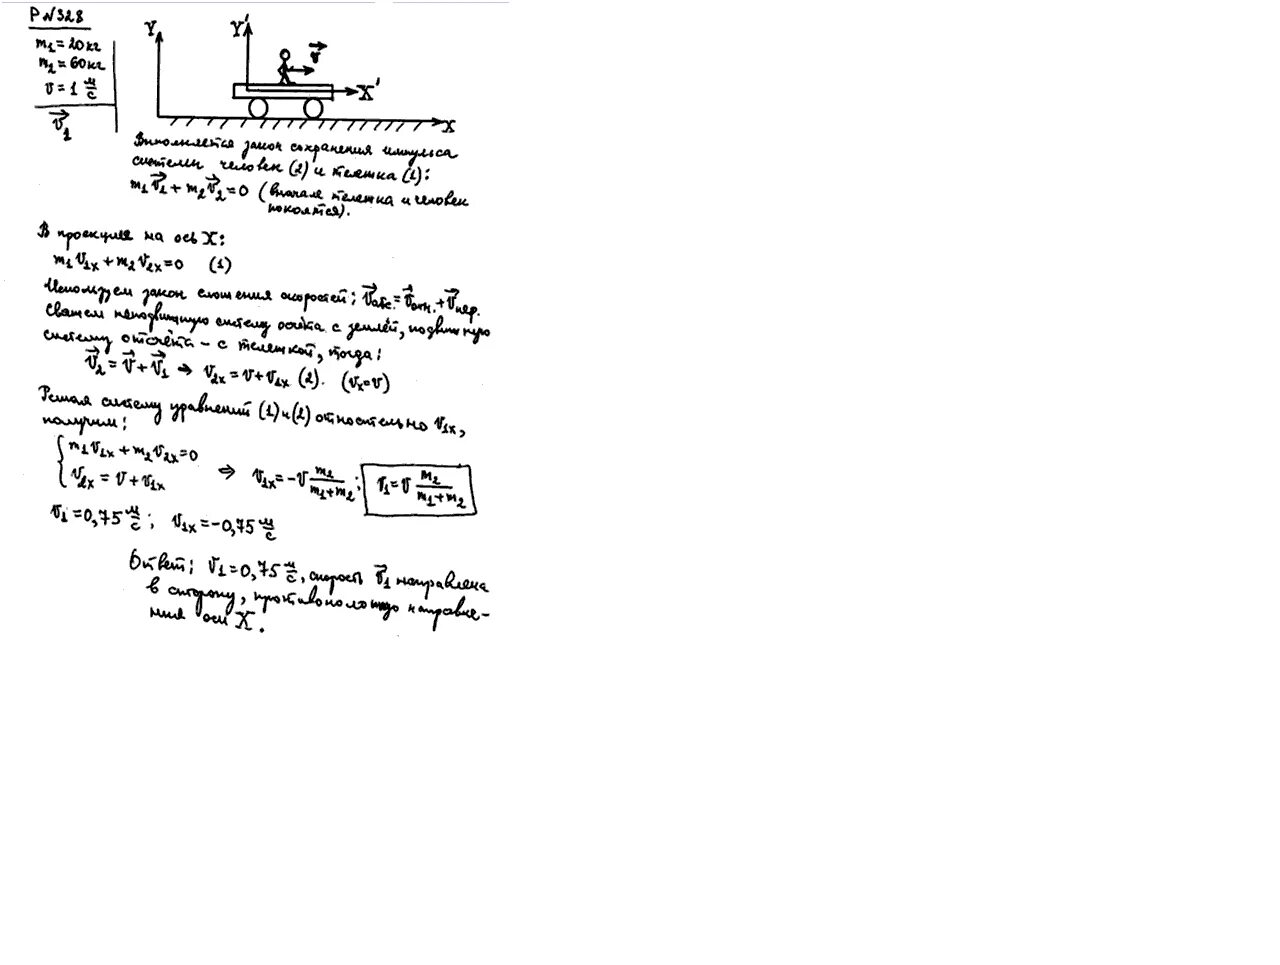 Р №328
m₁ = 20 кг
m₂ = 60 кг
v = 1 м/с
v⃗₁
Y
Y'
v⃗
X'
X
Выполняется закон сохранения импульса
системы человек (2) и тележка (1):
m₁v⃗₁ + m₂v⃗₂ = 0 (вначале тележка и человек
покоятся).
В проекция на ось X:
m₁v₁ₓ + m₂v₂ₓ = 0 (1)
Используем закон сложения скоростей: v⃗абс. = v⃗отн. + v⃗пер.
Свяжем неподвижную систему отсчёта с землёй, подвижную
систему отсчёта - с тележкой, тогда:
v⃗₂ = v⃗ + v⃗₁ → v₂ₓ = v + v₁ₓ (2). (vₓ = v)
Решая систему уравнений (1) и (2) относительно v₁ₓ,
получим:
{ m₁v₁ₓ + m₂v₂ₓ = 0
{ v₂ₓ = v + v₁ₓ
⇒ v₁ₓ = -v m₂/(m₁+m₂); v₁ = v m₂/(m₁+m₂)
v₁ = 0,75 м/с; v₁ₓ = -0,75 м/с
Ответ: v₁ = 0,75 м/с, скорость v⃗₁ направлена
в сторону, противоположную направле-
ния оси X.